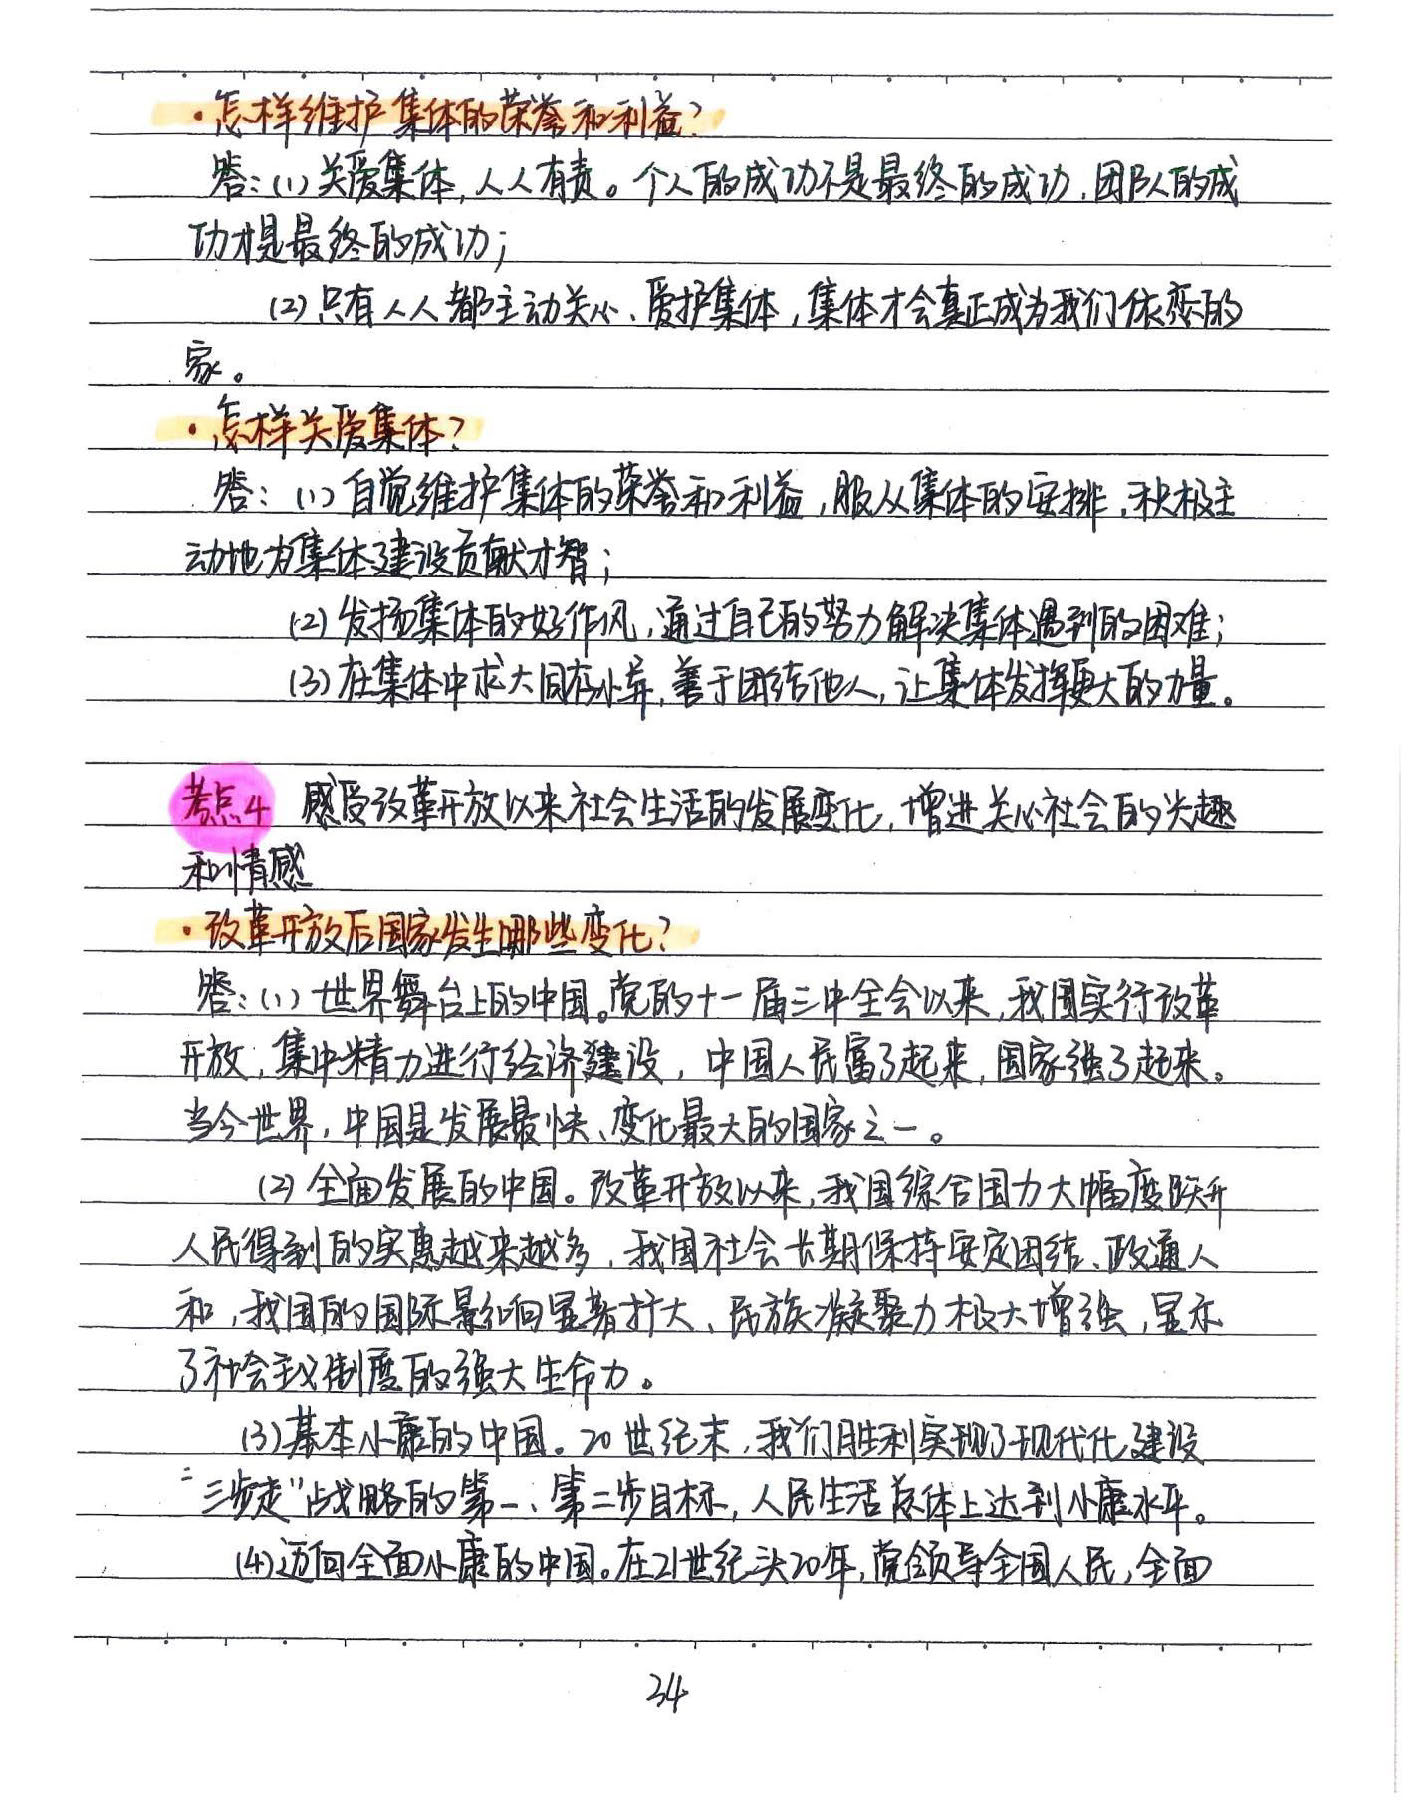 ·怎样维护集体的荣誉和利益？
答：(1)关爱集体，人人有责。个人的成功不是最终的成功，团队的成
功才是最终的成功；
(2)只有人人都主动关心、爱护集体，集体才会真正成为我们依恋的
家。
·怎样关爱集体？
答：(1)自觉维护集体的荣誉和利益，服从集体的安排，积极主
动地为集体建设贡献才智；
(2)发扬集体的好作风，通过自己的努力解决集体遇到的困难；
(3)在集体中求大同存小异，善于团结他人，让集体发挥更大的力量。
考点4 感受改革开放以来社会生活的发展变化，增进关心社会的兴趣
和情感
·改革开放后国家发生哪些变化？
答：(1)世界舞台上的中国。党的十一届三中全会以来，我国实行改革
开放，集中精力进行经济建设，中国人民富了起来，国家强了起来。
当今世界，中国是发展最快、变化最大的国家之一。
(2)全面发展的中国。改革开放以来，我国综合国力大幅度跃升
人民得到的实惠越来越多，我国社会长期保持安定团结、政通人
和，我国的国际影响显著扩大、民族凝聚力极大增强，显示
了社会主义制度的强大生命力。
(3)基本小康的中国。20世纪末，我们胜利实现了现代化建设
“三步走”战略的第一、第二步目标，人民生活总体上达到小康水平。
(4)迈向全面小康的中国。在21世纪头20年，党领导全国人民，全面
34